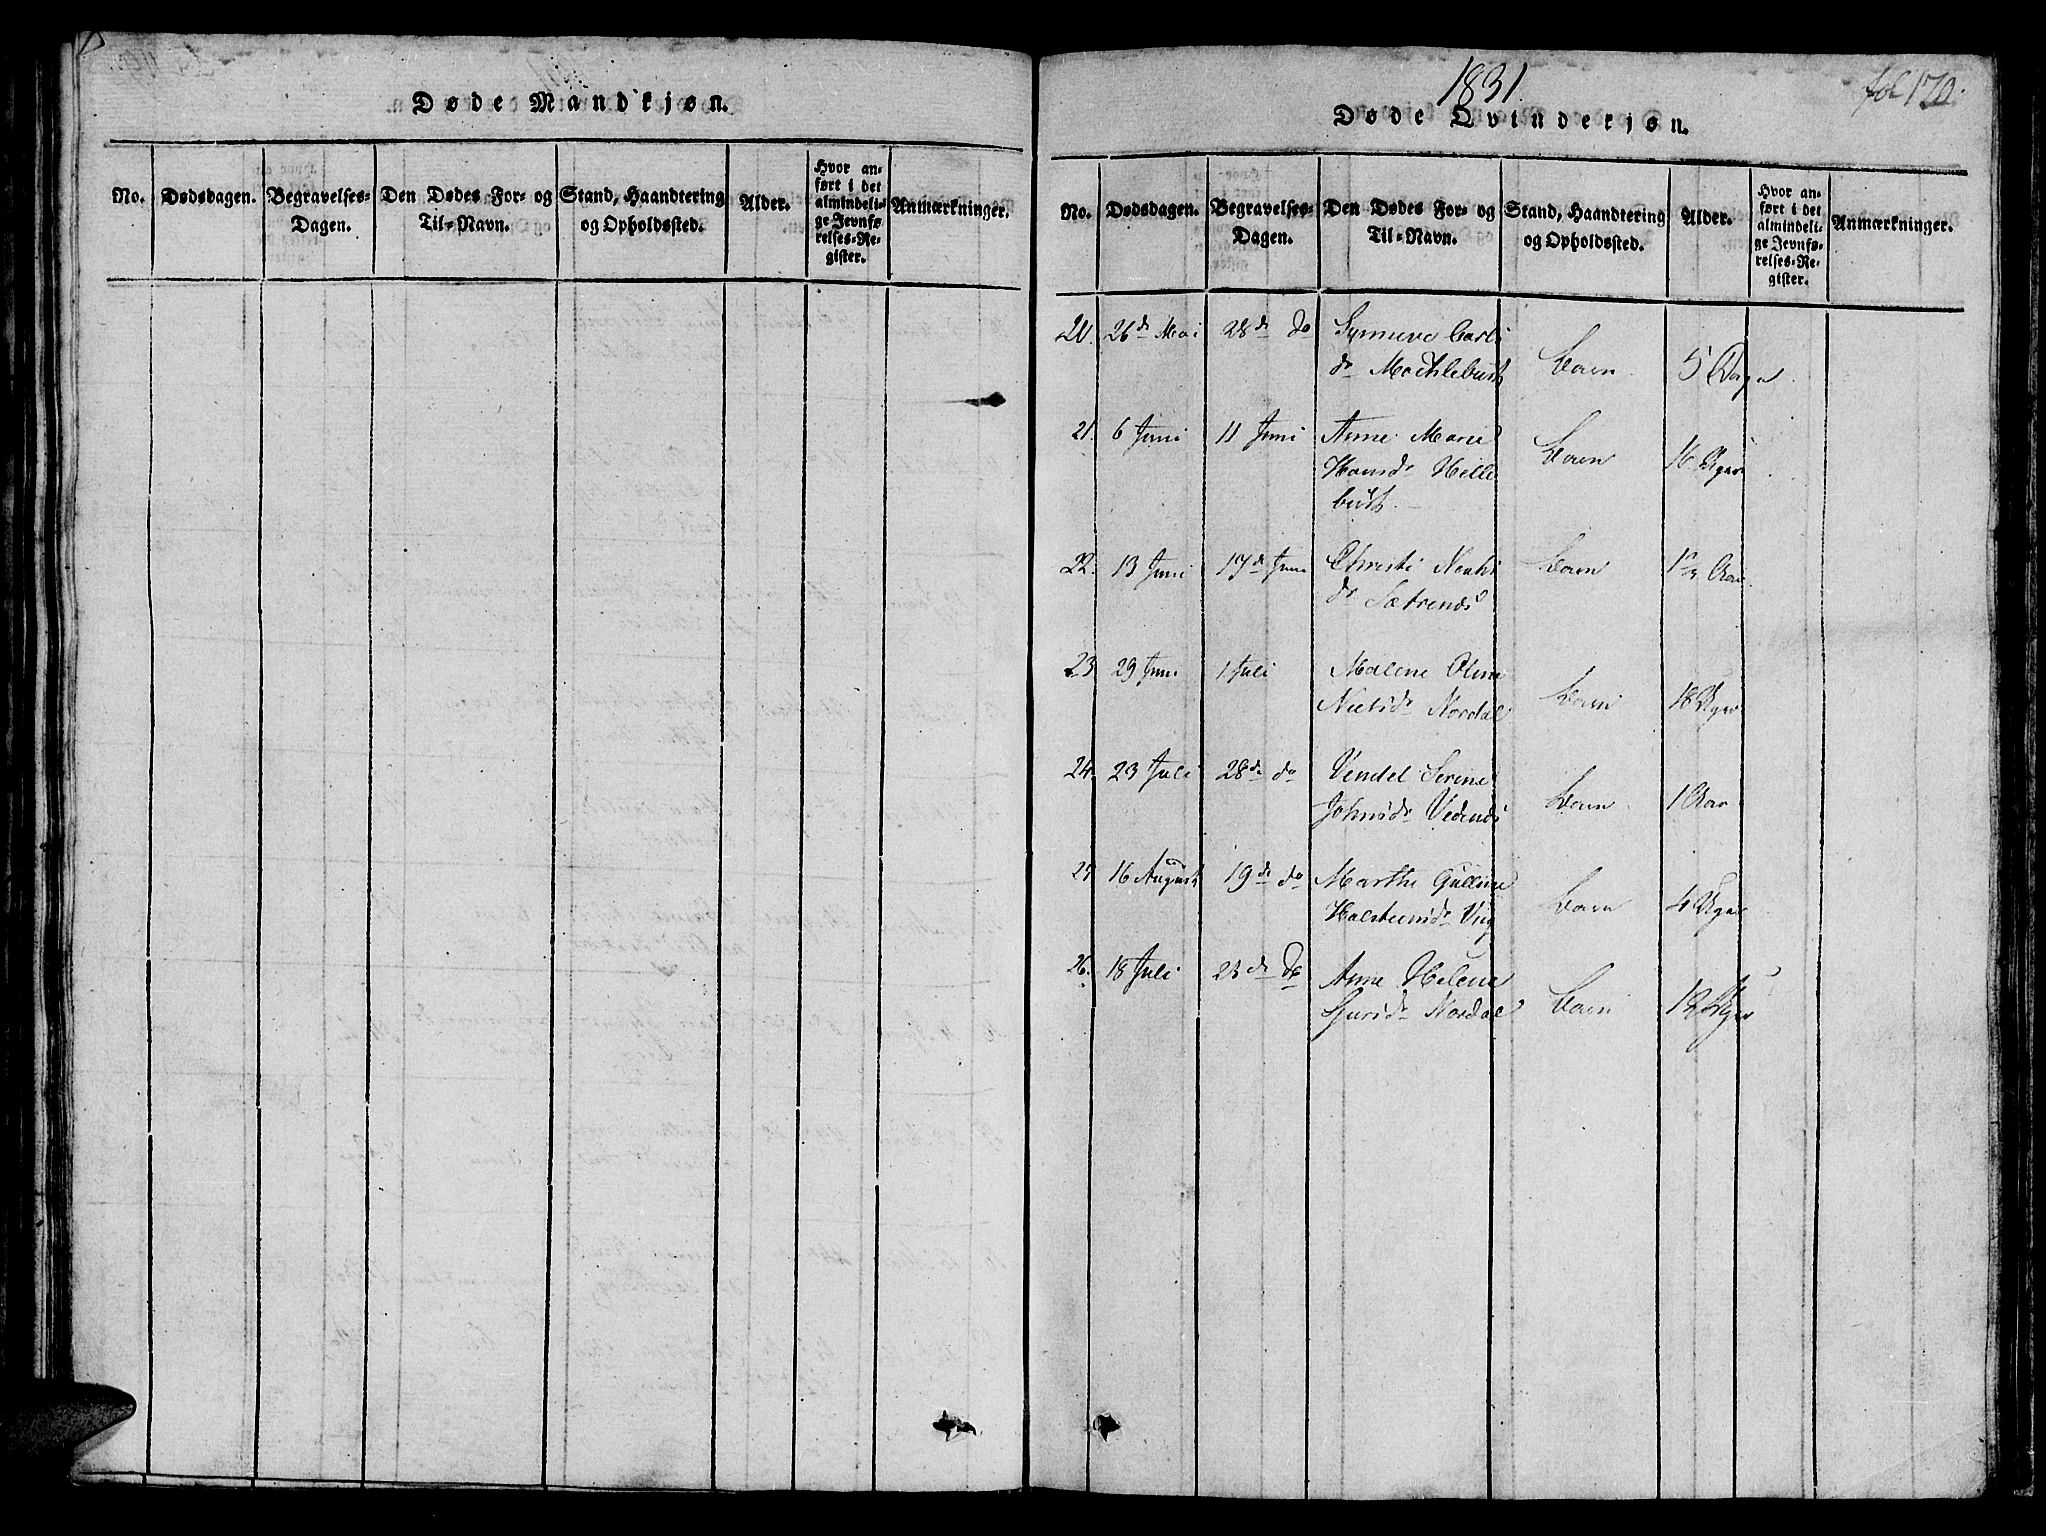 Døde Mandkjøn.
No. Dødsdagen. Begravelses-Dagen. Den Dødes For- og Til-Navn. Stand, Haandtering og Opholdssted. Alder. Hvor anført i det almindelige Jevnførelses-Register. Anmærkninger.
1831.
fol 170.
Døde Qvindekjøn.
No. Dødsdagen. Begravelses-Dagen. Den Dødes For- og Til-Navn. Stand, Haandtering og Opholdssted. Alder. Hvor anført i det almindelige Jevnførelses-Register. Anmærkninger.
20. 26de Mai 28de do Synneve Carls
dr Mochlebust Barn 5 Dage
21. 6 Juni 11 Juni Anne Marie
Hansdr Helle
bust. Barn 16 Uger
22. 13 Juni 17de Juni Christi
dr Sætrends Barn 1 Aar
23 29 Juni 1 Juli Malene Oline
Nielsdr Nordal Barn 18 Uger
24. 23 Juli 28de do Vendel Serine
Johnsdr Vedends Barn 1 Aar
25 16 August 19de do Marthe Gulline
Halsteinsdr Viig Barn 4 Uger
26. 18 Juli 23de do Anne Helene
Sjursdr Nordal Barn 12 Uger